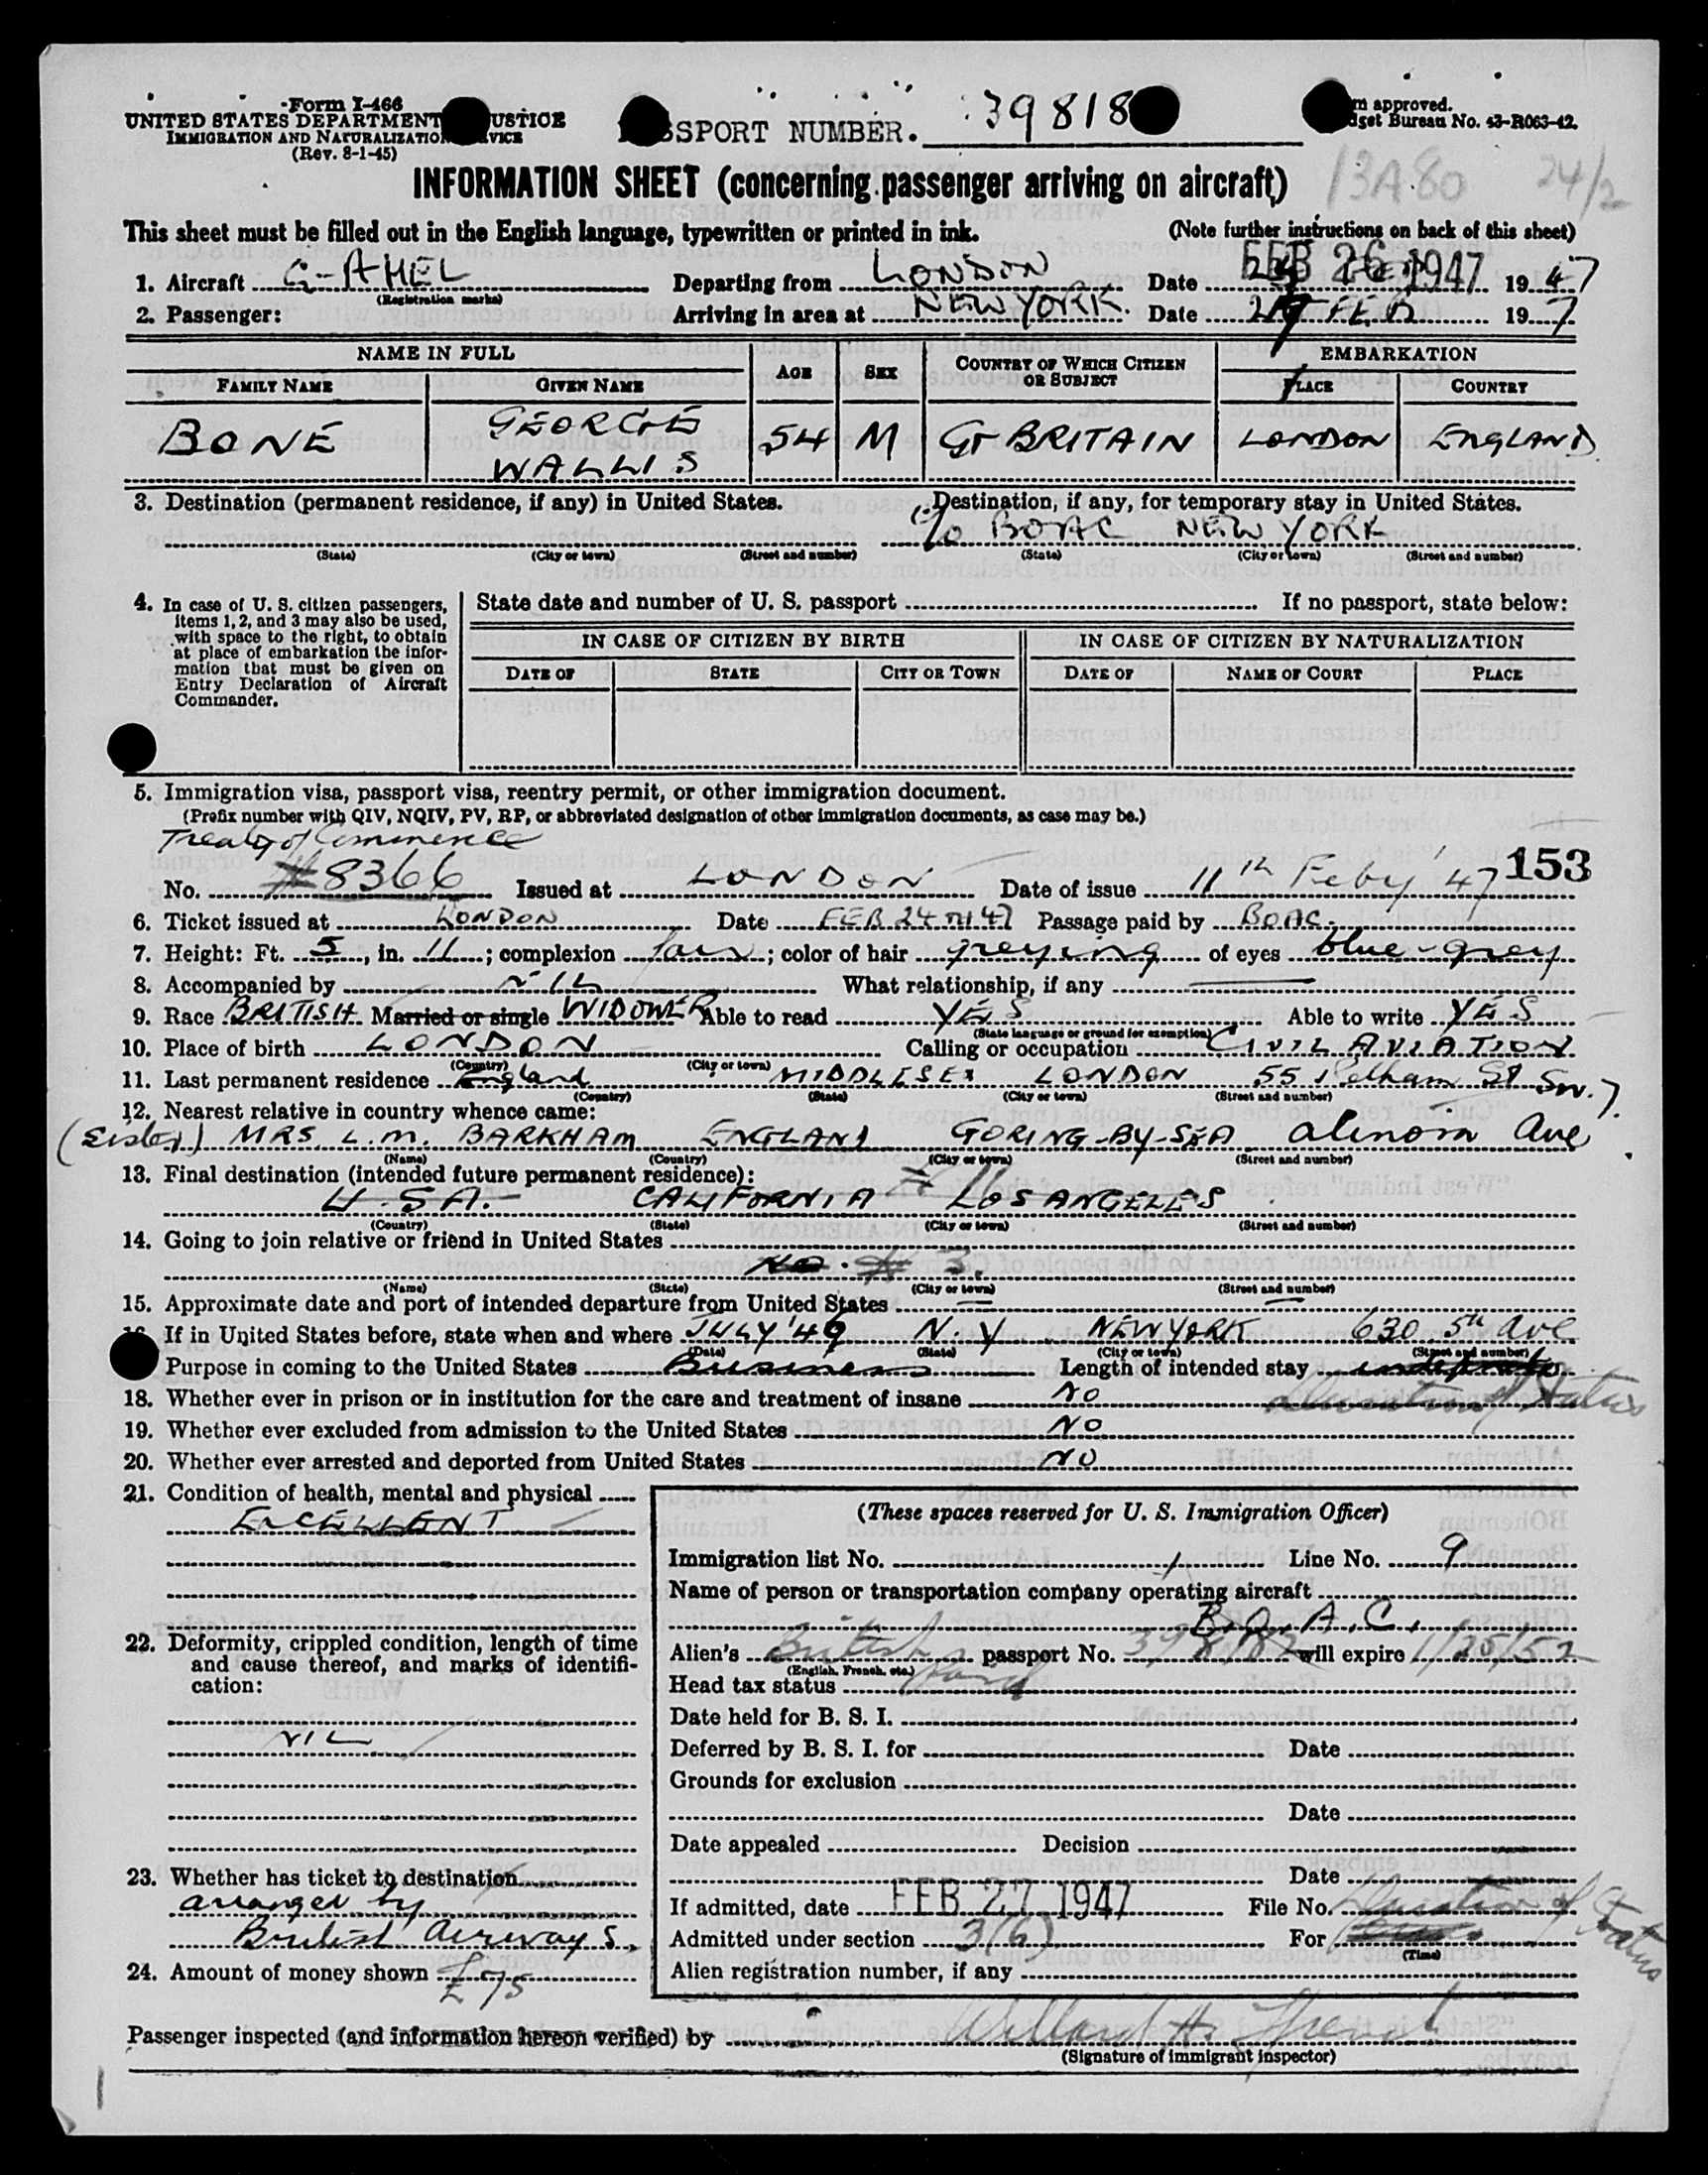 Form I-466
UNITED STATES DEPARTMENT USTICE
IMMIGRATION AND NATURALIZATION VICE
(Rev. 8-1-45)
SSPORT NUMBER. 39818
m approved.
dget Bureau No. 43-R063-42.
INFORMATION SHEET (concerning passenger arriving on aircraft)
13A80 24/2
This sheet must be filled out in the English language, typewritten or printed in ink. (Note further instructions on back of this sheet)
1. Aircraft G-AHEL Departing from LONDON Date FEB 26 1947 1947
(Registration marks)
2. Passenger: Arriving in area at NEW YORK. Date FEB 197
NAME IN FULL AGE SEX COUNTRY OF WHICH CITIZEN OR SUBJECT EMBARKATION
FAMILY NAME GIVEN NAME PLACE COUNTRY
BONE GEORGE WALLIS 54 M GT BRITAIN LONDON ENGLAND
3. Destination (permanent residence, if any) in United States. Destination, if any, for temporary stay in United States.
c/o BOAC NEW YORK
(State) (City or town) (Street and number) (State) (City or town) (Street and number)
4. In case of U. S. citizen passengers, items 1, 2, and 3 may also be used, with space to the right, to obtain at place of embarkation the information that must be given on Entry Declaration of Aircraft Commander.
State date and number of U. S. passport If no passport, state below:
IN CASE OF CITIZEN BY BIRTH IN CASE OF CITIZEN BY NATURALIZATION
DATE OF STATE CITY OR TOWN DATE OF NAME OF COURT PLACE
5. Immigration visa, passport visa, reentry permit, or other immigration document.
(Prefix number with QIV, NQIV, PV, RP, or abbreviated designation of other immigration documents, as case may be.)
Treaty of Commerce
153
No. #8366 Issued at LONDON Date of issue 11th Feby '47
6. Ticket issued at LONDON Date FEB 24TH 47 Passage paid by BOAC.
7. Height: Ft. 5, in. 11; complexion fair; color of hair greying of eyes blue-grey
8. Accompanied by NIL What relationship, if any
9. Race BRITISH Married or single WIDOWER Able to read YES Able to write YES
(State language or ground for exemption)
10. Place of birth LONDON Calling or occupation CIVIL AVIATION
(Country) (City or town)
11. Last permanent residence England MIDDLESEX LONDON 55 Pelham St SW.7.
(Country) (State) (City or town) (Street and number)
12. Nearest relative in country whence came:
(Sister) MRS. L. M. BARKHAM ENGLAND GORING-BY-SEA Ave
(Name) (Country) (City or town) (Street and number)
13. Final destination (intended future permanent residence):
U.S.A. CALIFORNIA LOS ANGELES
(Country) (State) (City or town) (Street and number)
14. Going to join relative or friend in United States
No. # 3.
(Name) (State) (City or town) (Street and number)
15. Approximate date and port of intended departure from United States
If in United States before, state when and where JULY '46 N.Y NEW YORK 630 5th Ave
(Date) (State) (City or town) (Street and number)
Purpose in coming to the United States Business Length of intended stay indefinite
Duration of Status
18. Whether ever in prison or in institution for the care and treatment of insane NO
19. Whether ever excluded from admission to the United States NO
20. Whether ever arrested and deported from United States NO
21. Condition of health, mental and physical
EXCELLENT
22. Deformity, crippled condition, length of time and cause thereof, and marks of identification:
NIL
23. Whether has ticket to destination
arranged by
British Airways.
24. Amount of money shown £75
(These spaces reserved for U. S. Immigration Officer)
Immigration list No. 1 Line No. 9
Name of person or transportation company operating aircraft
B.O.A.C.
Alien's British passport No. 398182 will expire 1/25/52
(English, French, etc.)
Head tax status
Date held for B. S. I.
Deferred by B. S. I. for Date
Grounds for exclusion
Date
Date appealed Decision
Date
If admitted, date FEB 27 1947 File No. Duration of Status
Admitted under section 3(6) For
(Time)
Alien registration number, if any
Passenger inspected (and information hereon verified) by Willard H.
(Signature of immigrant inspector)